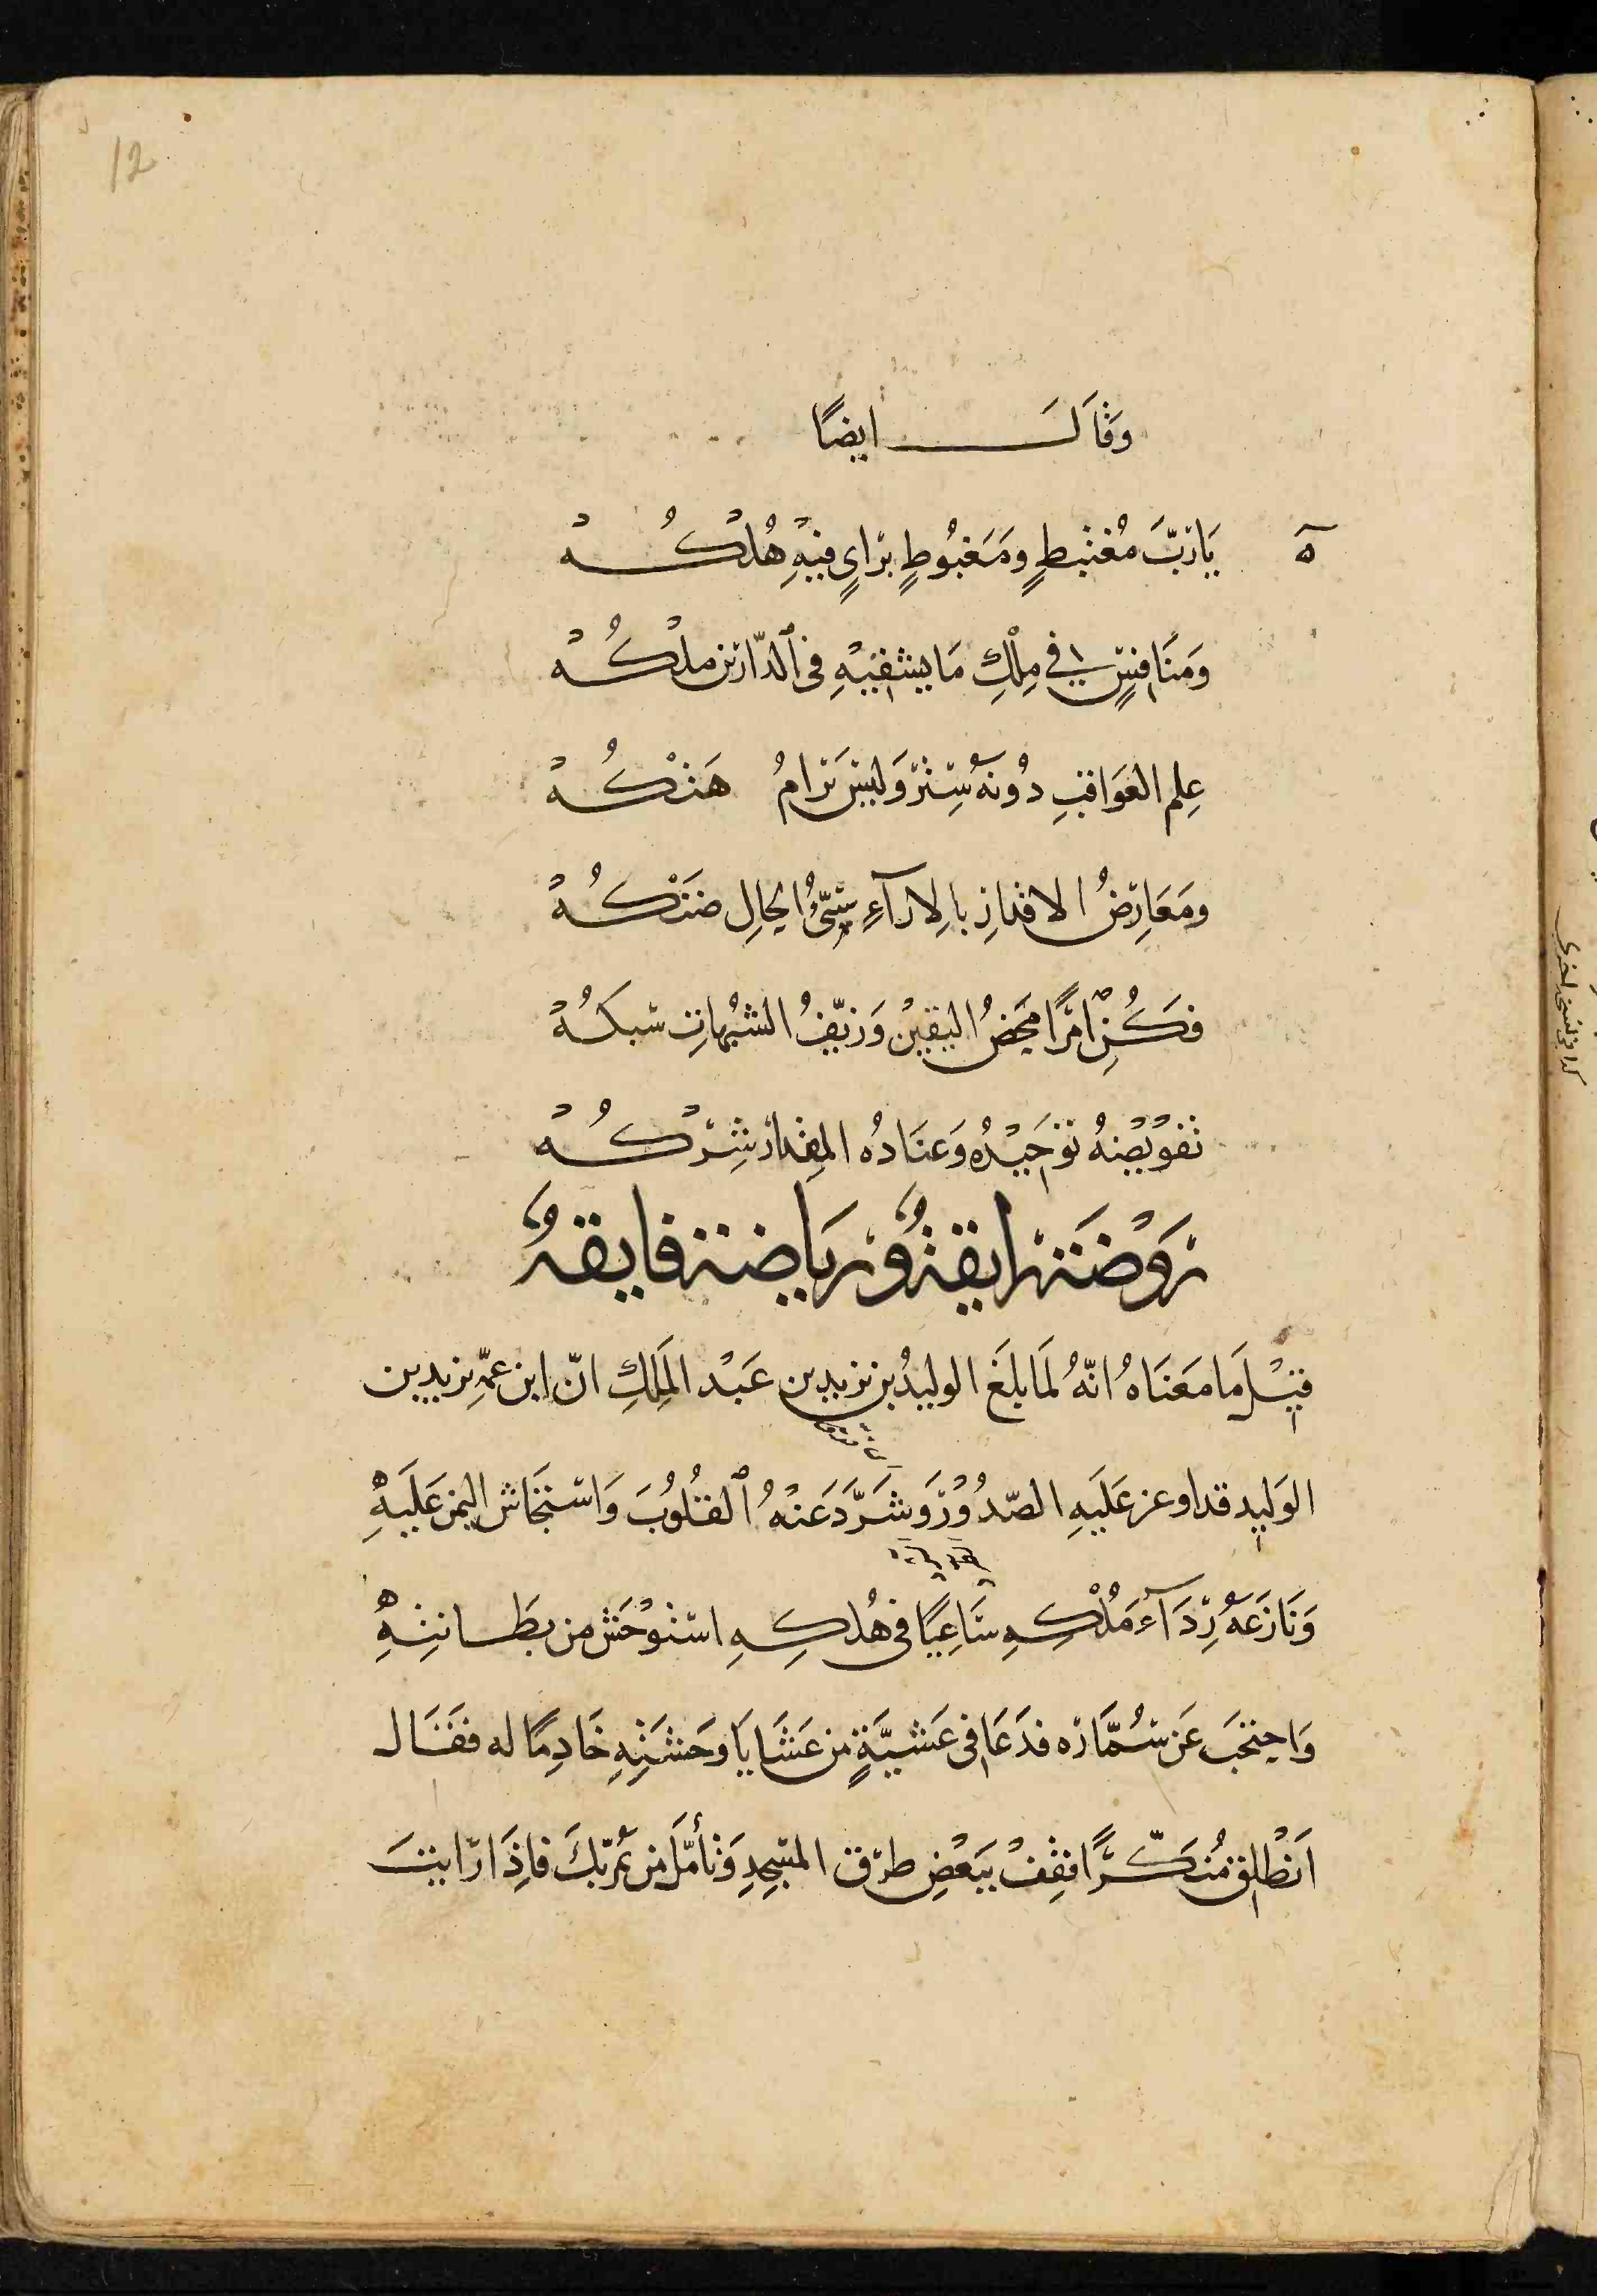 12
وَقَالَ ايضًا
يَا رُبَّ مُغْتَبِطٍ ومَغبُوطٍ برَايٍ فِيهِ هُلْكُهْ
وَمنَافِسٍ فِي مِلْكِ مَا يشقِيهِ فى ٱلدّارَيْن ملْكُهْ
عِلم العَوَاقبِ دُونَهُ سِتْرٌ وَليسَ يرَامُ هَتْكُهْ
ومَعَارِضُ الاقدارِ بالارآءِ سَيّىءُ الحَالِ ضَنْكُهْ
فكُنِ ٱمرًا محَضُ اليَقيْن وَزيّفُ الشبُهاتِ سَبكُهْ
تفويْضهُ توْحِيْدُه وَعنَادُه المِقدَار شِرْكُهْ
رَوْضَة رايقةٌ وَرِيَاضة فايقةٌ
قِيْلَ مَا مَعَنَاهُ انّهُ لَما بلَغَ الوليدُ بن يزيد بن عَبْد المَلِكِ انّ ابن عمّهِ يزيد بن
الوَليد قد اوغر عَلَيهِ الصّدُوْرَ وَشَرَّدَ عَنْهُ ٱلقُلُوبَ وَاسْتجَاش اليمن عَلَيهِ
وَنَازَعَهُ رِدَآءَ مُلْكِهِ سَاعِيًا فى هُلكِهِ استوْحَشَ من بطَانتِهِ
وَاحتجَبَ عَن سُمَّارِه فدَعَا فى عَشيَّةٍ من عَشَايَا وَحشَتِهِ خَادِمًا له فقَال
اَنْطَلِق مُتَنكّرًا فقِفْ ببَعْضِ طرُق المسْجِدِ وَتأمّل من يمُر بّكَ فاِذَا رايتَ